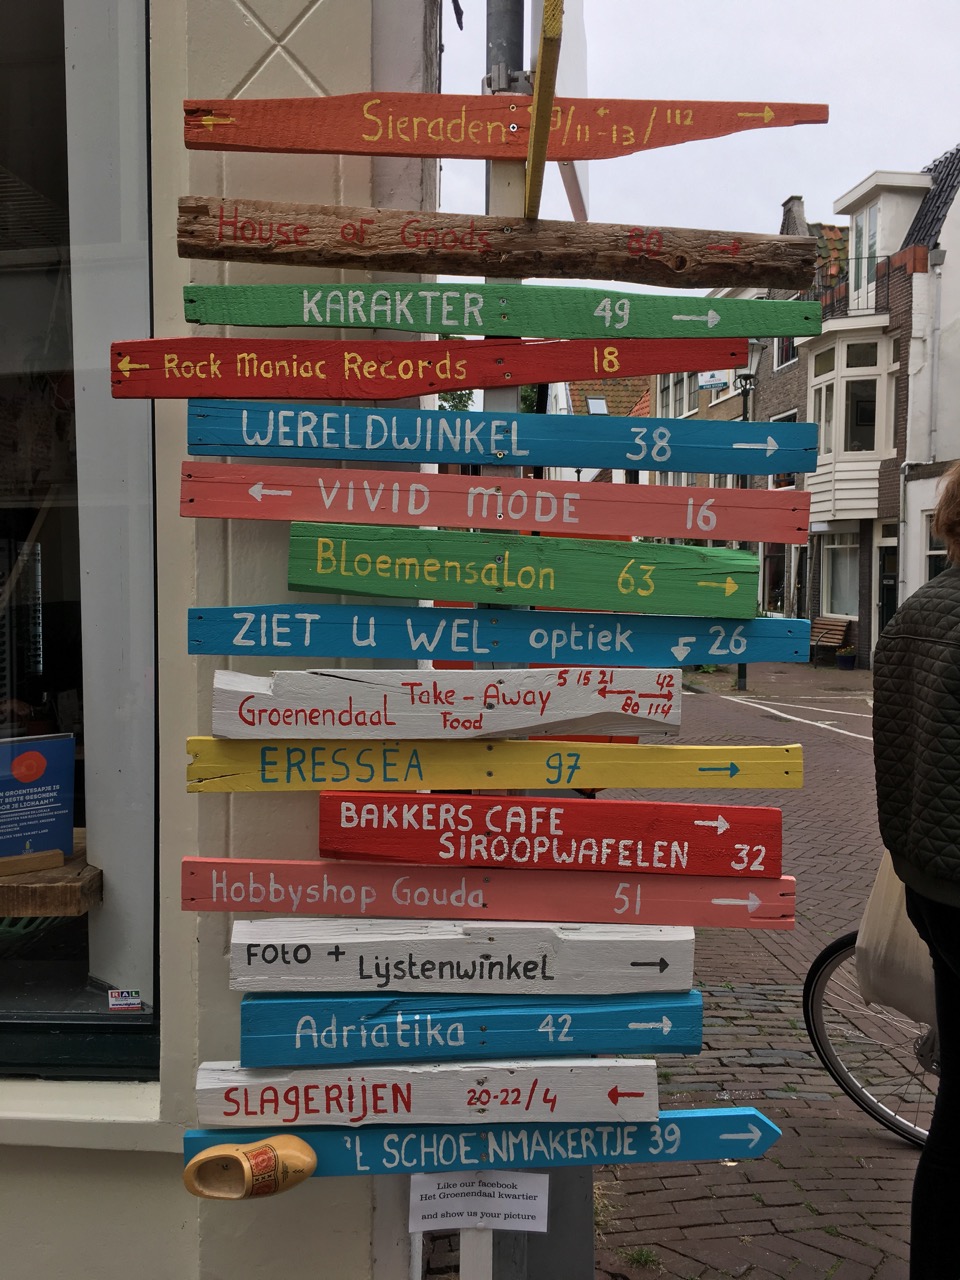 ← Sieraden 9/11-13/112 →
House of Goods 80 →
KARAKTER 49 →
← Rock Maniac Records 18
WERELDWINKEL 38 →
← VIVID MODE 16
Bloemensalon 63 →
ZIET U WEL optiek 26
Groenendaal Take-Away Food
5 15 21 42
← →
80 114
ERESSËA 97 →
BAKKERS CAFE →
SIROOPWAFELEN 32
Hobbyshop Gouda 51 →
FOTO +
Lijstenwinkel →
Adriatika 42 →
SLAGERIJEN 20-22/4 ←
'L SCHOENMAKERTJE 39 →
Like our facebook
Het Groenendaal kwartier
and show us your picture
RAL